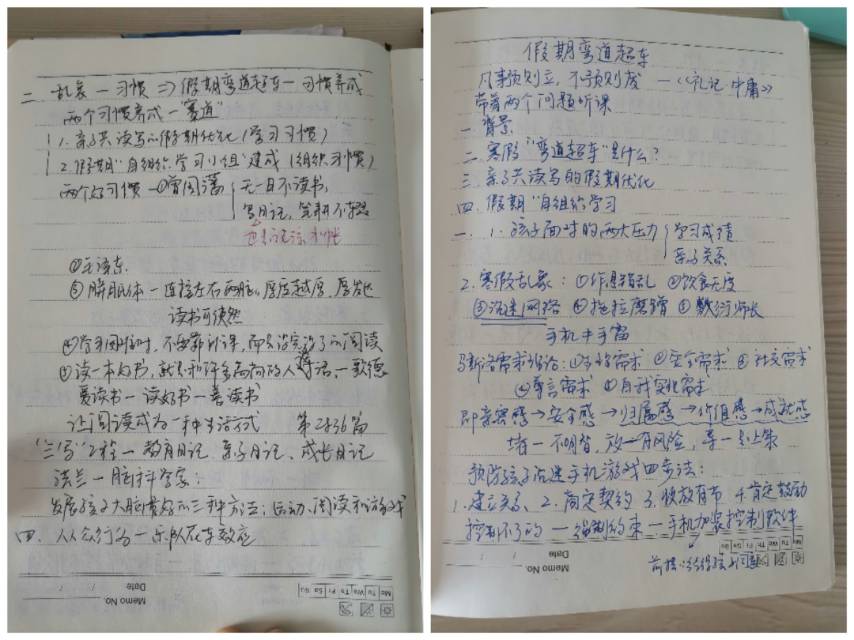 假期弯道超车
凡事预则立,不预则废 —《礼记·中庸》
带着两个问题听课
一. 背景
二. 寒假"弯道超车"是什么?
三. 亲子共读写的假期优化
四. 假期"自组织学习
一. 1. 孩子面对的两大压力 学习成绩
亲子关系
2. 寒假乱象: ①作息错乱 ②饮食无度
③沉迷网络 ④拖拉磨蹭 ⑤敷衍师长
手机
马斯洛需求 ①生理需求 ②安全需求 ③社交需求
④尊重需求 ⑤自我实现需求
即亲密感→安全感→归属感→价值感→成就感
堵一不明智, 放一有风险, 导一是上策
预防孩子沉迷手机游戏四步法:
1. 建立关系 2. 商定契约 3. 收放有节 4. 肯定鼓励
控制不了的 — 强制约束 — 手机加装控制软件
前提:
Mo Tu We Th Fr Sa Su
Memo No.
Date / /
二. 乱象 — 习惯 ⇒ 假期弯道超车 — 习惯养成
两个习惯养成 — "赛道"
1. 亲子共读写的假期优化 (学习习惯)
2. 假期"自组织学习小组"建成 (组织习惯)
两个好习惯 — ①曾国藩 无一日不读书,
写日记,
②毛泽东
③胼胝体 — 连接左右两脑, 厚度越厚,
读书可使然
④学习困难时, 不要靠补课, 而是读读了再阅读
⑤读一本好书, 就是和许多高尚的人对话 — 歌德
爱读书 — 读好书 — 善读书
让阅读成为一种生活方式 第2436篇
"三写"工程 — 教育日记、亲子日记、成长日记
法兰 — 脑科学家:
发展孩子大脑最好的三种方法: 运动、阅读和游戏
四. 从众行为 — 乐队花车效应
Mo Tu We Th Fr Sa Su
Memo No.
Date / /